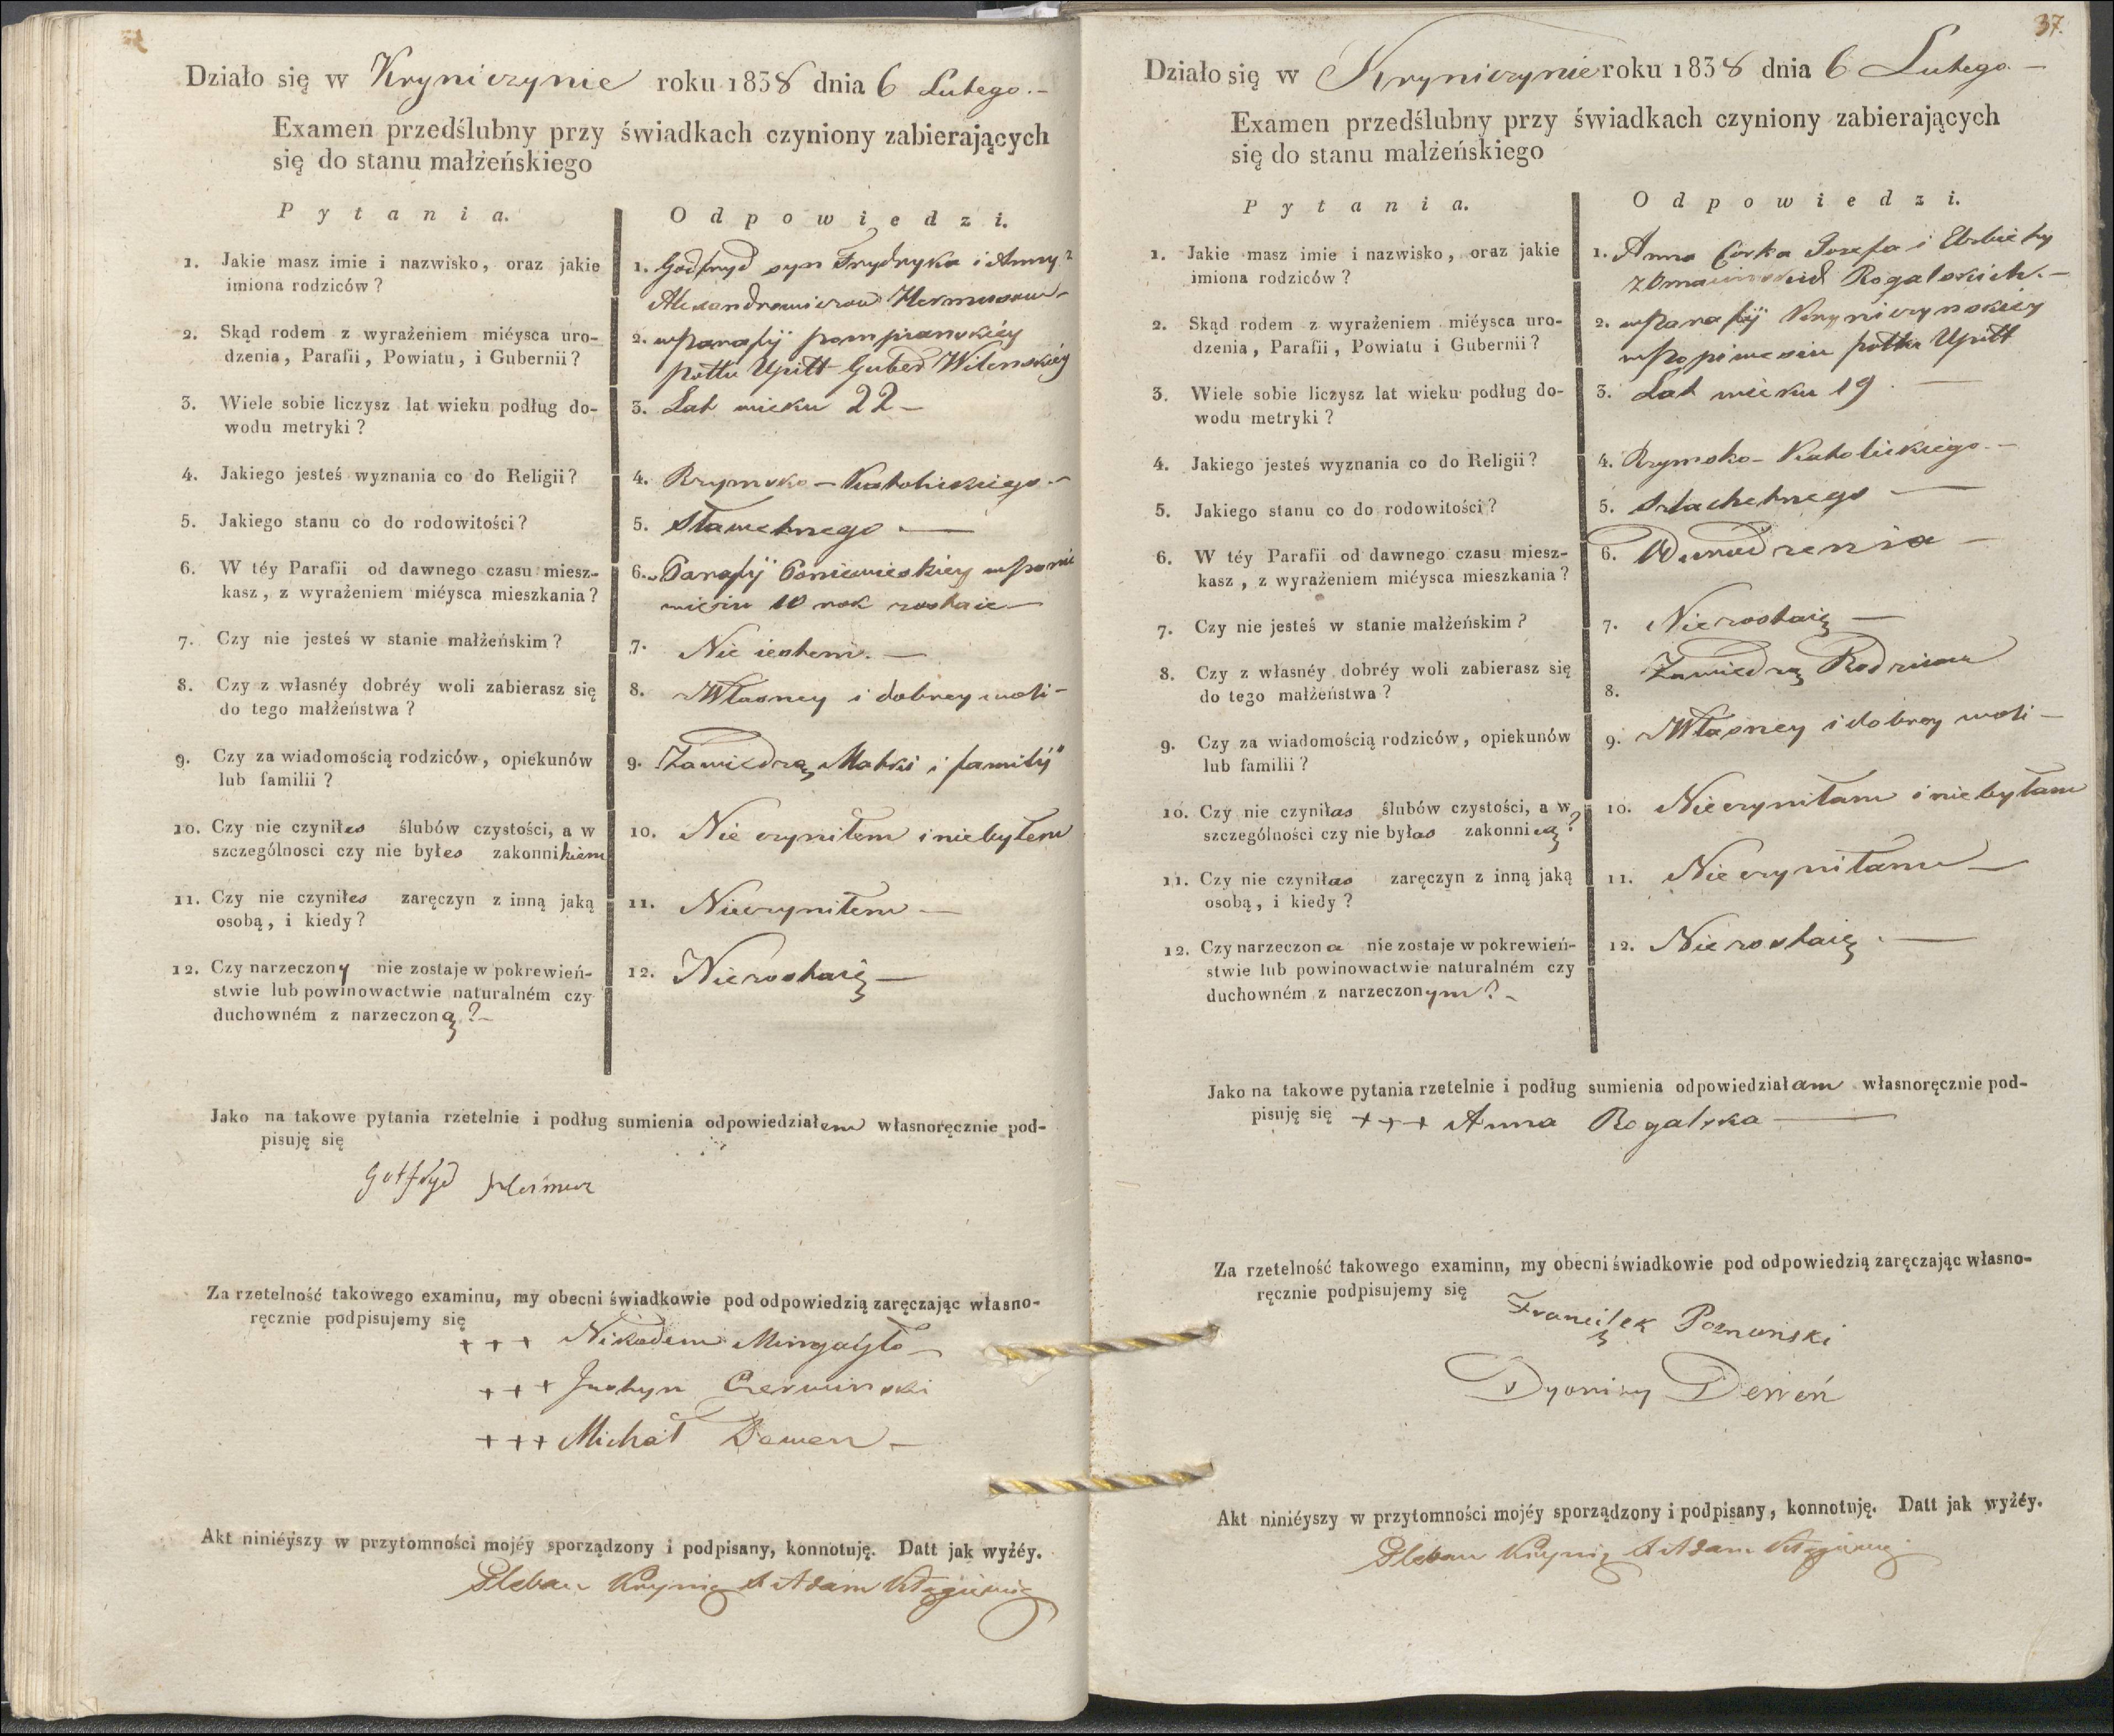 Działo się w Kryniczynie roku 1838 dnia 6 Lutego.-
Examen przedślubny przy świadkach czyniony zabierających
się do stanu małżeńskiego
Pytania.
Odpowiedzi.
1. Jakie masz imie i nazwisko, oraz jakie
imiona rodziców?
1. Godfryd syn Frydryka i Anny z
Alexandrowiczow
2. Skąd rodem z wyrażeniem miéysca uro-
dzenia, Parafii, Powiatu, i Gubernii?
2. w Parafÿ pompianskiéy
pottu Upitt Guber Wilenskiéy
3. Wiele sobie liczysz lat wieku podług do-
wodu metryki?
3. Lat wieku 22 -
4. Jakiego jesteś wyznania co do Religii?
4. Rzymsko - Katolickiego -
5. Jakiego stanu co do rodowitości?
5. Sławetnego -
6. W téy Parafii od dawnego czasu miesz-
kasz, z wyrażeniem miéysca mieszkania?
6. w Parafÿ Poniewieskiey w Ponie
wieziu 10 rok zostaie -
7. Czy nie jesteś w stanie małżeńskim?
7. Nie iestem. -
8. Czy z własnéy dobréy woli zabierasz się
do tego małżeństwa?
8. z Własney i dobrey woli -
9. Czy za wiadomością rodziców, opiekunów
lub familii?
9. Zawiedzą Matki i familÿ
10. Czy nie czyniłes ślubów czystości, a w
szczególnosci czy nie byłes zakonnikiem
10. Nie czyniłem i niebyłem
11. Czy nie czyniłes zaręczyn z inną jaką
osobą, i kiedy?
11. Nieczyniłem -
12. Czy narzeczony nie zostaje w pokrewień-
stwie lub powinowactwie naturalném czy
duchowném z narzeczoną? -
12. Niezostaię -
Jako na takowe pytania rzetelnie i podług sumienia odpowiedziałem własnoręcznie pod-
pisuję się
Gotfryd
Za rzetelność takowego examinu, my obecni świadkowie pod odpowiedzią zaręczając własno-
ręcznie podpisujemy się
+++ Nikodem
+++ Justyn Czerwinski
+++ Michał Dewen -
Akt niniéyszy w przytomności mojéy sporządzony i podpisany, konnotuję. Datt jak wyżéy.
Pleban Krynic X Adam
37.
Działo się w Kryniczynie roku 1838 dnia 6 Lutego. -
Examen przedślubny przy świadkach czyniony zabierających
się do stanu małżeńskiego
Pytania.
Odpowiedzi.
1. Jakie masz imie i nazwisko, oraz jakie
imiona rodziców?
1. Anna Corka Jozefa i Elzbiety
Rogalskich. -
2. Skąd rodem z wyrażeniem miéysca uro-
dzenia, Parafii, Powiatu i Gubernii?
2. w Parafÿ Kryniczynskiéy
pottu Upitt
3. Wiele sobie liczysz lat wieku podług do-
wodu metryki?
3. Lat wieku 19. -
4. Jakiego jesteś wyznania co do Religii?
4. Rzymsko - Katolickiego. -
5. Jakiego stanu co do rodowitości?
5. Szlachetnego -
6. W téy Parafii od dawnego czasu miesz-
kasz, z wyrażeniem miéysca mieszkania?
6. Od urodzenia -
7. Czy nie jesteś w stanie małżeńskim?
7. Niezostaię -
8. Czy z własnéy dobréy woli zabierasz się
do tego małżeństwa?
8. Zawiedzą Rodzicow
9. Czy za wiadomością rodziców, opiekunów
lub familii?
9. z Własney i dobrey woli -
10. Czy nie czyniłas ślubów czystości, a w
szczególności czy nie byłas zakonnicą?
10. Nieczyniłam i niebyłam
11. Czy nie czyniłas zaręczyn z inną jaką
osobą, i kiedy?
11. Nieczyniłam -
12. Czy narzeczona nie zostaje w pokrewień-
stwie lub powinowactwie naturalném czy
duchowném z narzeczonym? -
12. Niezostaię. -
Jako na takowe pytania rzetelnie i podług sumienia odpowiedziałam własnoręcznie pod-
pisuję się +++ Anna Rogalska -
Za rzetelność takowego examinu, my obecni świadkowie pod odpowiedzią zaręczając własno-
ręcznie podpisujemy się
Franciszek Poznanski
Dyonizy Deweń
Akt niniéyszy w przytomności mojéy sporządzony i podpisany, konnotuję. Datt jak wyżéy.
Pleban Krynic X Adam